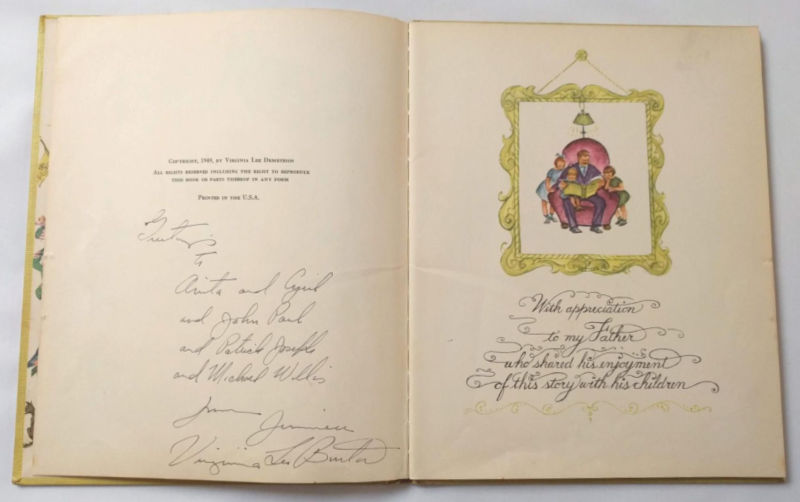 COPYRIGHT, 1949, BY VIRGINIA LEE DEMETRIOS
ALL RIGHTS RESERVED INCLUDING THE RIGHT TO REPRODUCE
THIS BOOK OR PARTS THEREOF IN ANY FORM
PRINTED IN THE U.S.A.
Greetings
to
Anita and Cyril
and John Paul
and Patrick Joseph
and Michael Willis
from Jinnee
Virginia Lee Burton
With appreciation
to my Father
who shared his enjoyment
of this story with his children